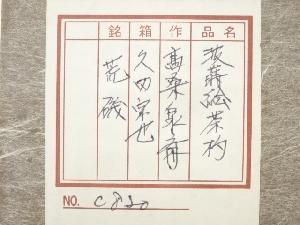 品名
波蒔絵茶杓
作
高桑
箱
久田宗也
銘
荒磯
NO. C820